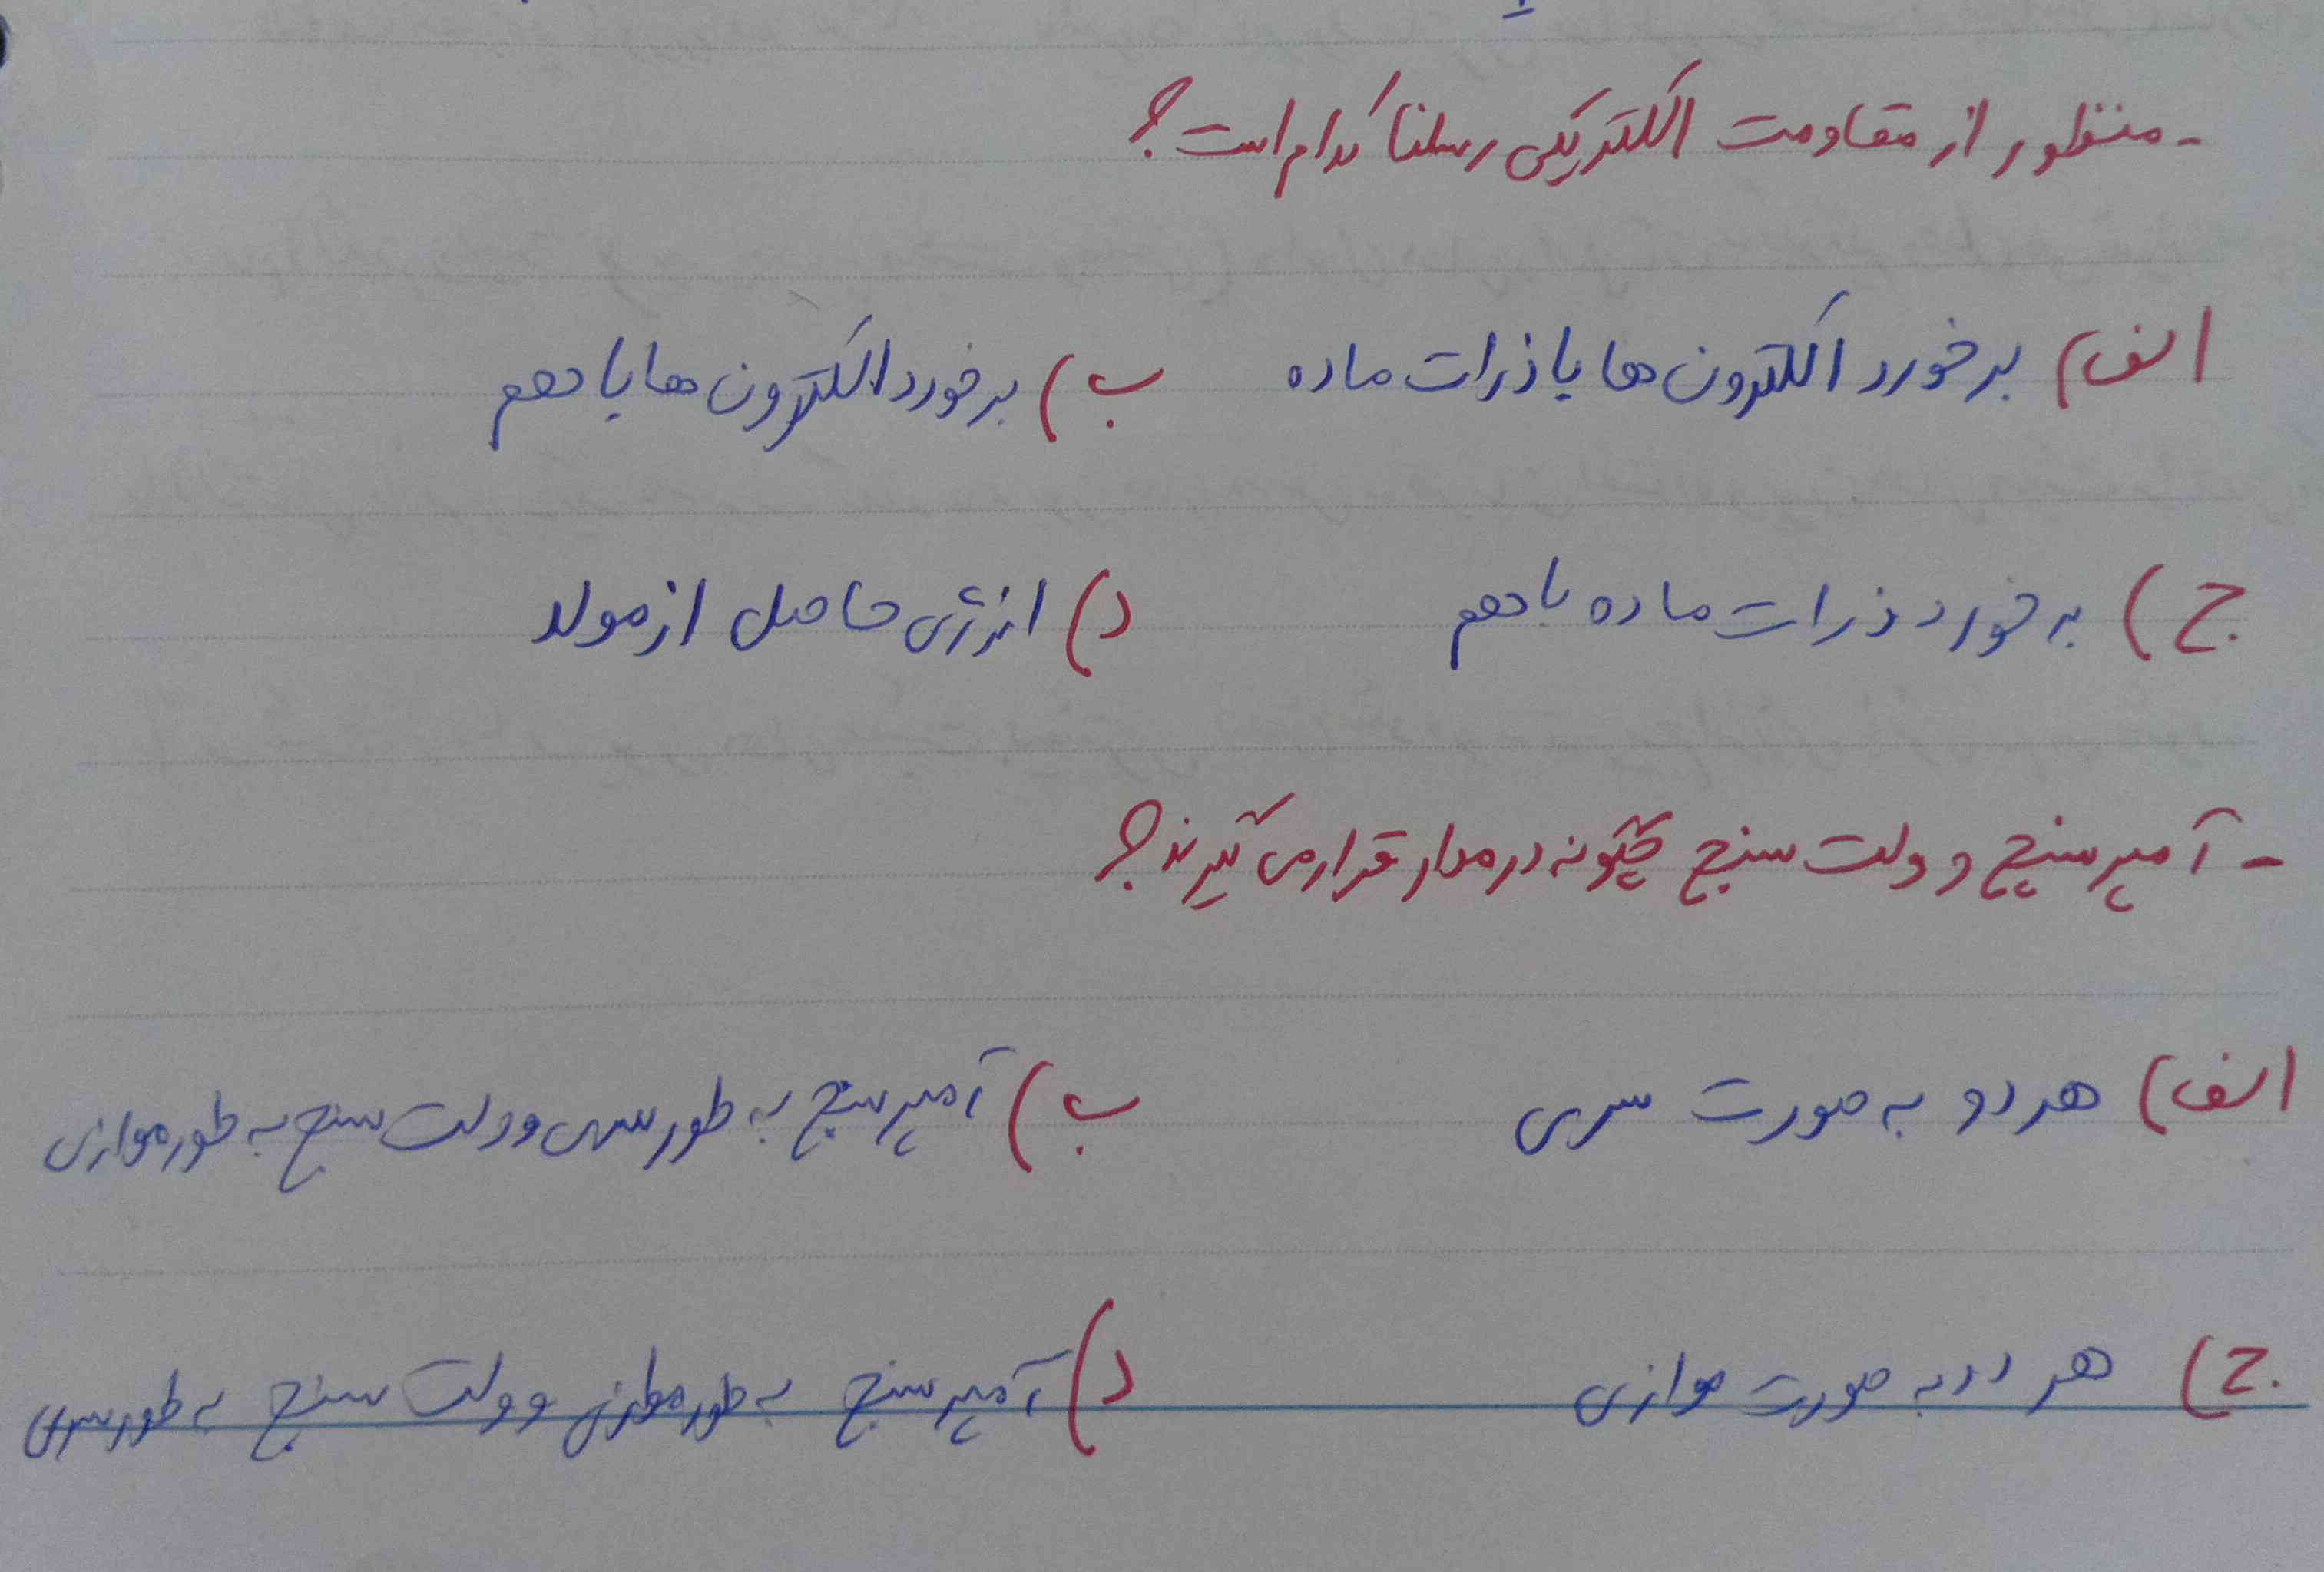 - منظور از مقاومت الکتریکی رسانا کدام است؟
الف) برخورد الکترون ها با ذرات ماده ب) برخورد الکترون ها با هم
ج) برخورد ذرات ماده با هم د) انرژی حاصل از مولد
- آمپرسنج و ولت سنج چگونه در مدار قرار می گیرند؟
الف) هر دو به صورت سری ب) آمپرسنج به طور سری و ولت سنج به طور موازی
ج) هر دو به صورت موازی د) آمپرسنج به طور موازی و ولت سنج به طور سری